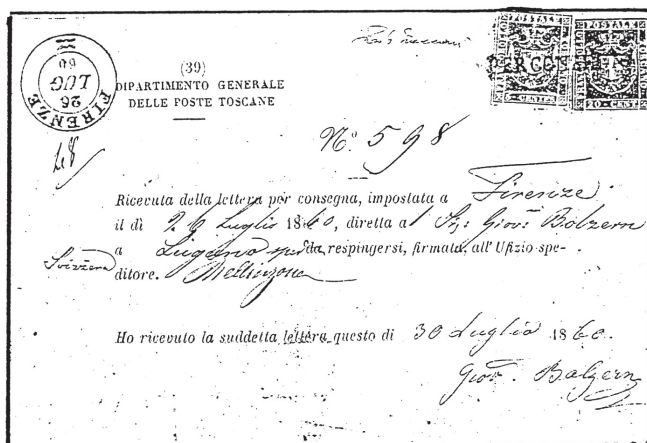 POSTALE POSTALE
PER CONSEGNA
20 CENT
FIRENZE
26
LUG
60
(39)
DIPARTIMENTO GENERALE
DELLE POSTE TOSCANE
N.º 598
Ricevuta della lettera per consegna, impostata a Firenze
il dì 26 Luglio 1860, diretta al Sig: Giov: Bolzern
a Lugano da respingersi, firmata, all'Ufizio spe-
Svizzera
ditore. Bellinzona
Ho ricevuto la suddetta lettera questo dì 30 Luglio 1860.
Giov. Balzern